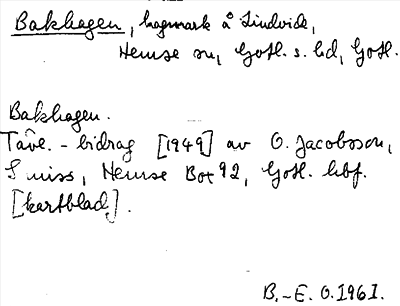 Bakhagen, hagmark å Lindvide,
Hemse sn, Gotl. s. hd, Gotl.
Bakhagen.
Tävl. - bidrag [1949] av O. Jacobsson,
Smiss, Hemse Box 92, Gotl. hbf.
[kartblad].
B.-E. O. 1961.